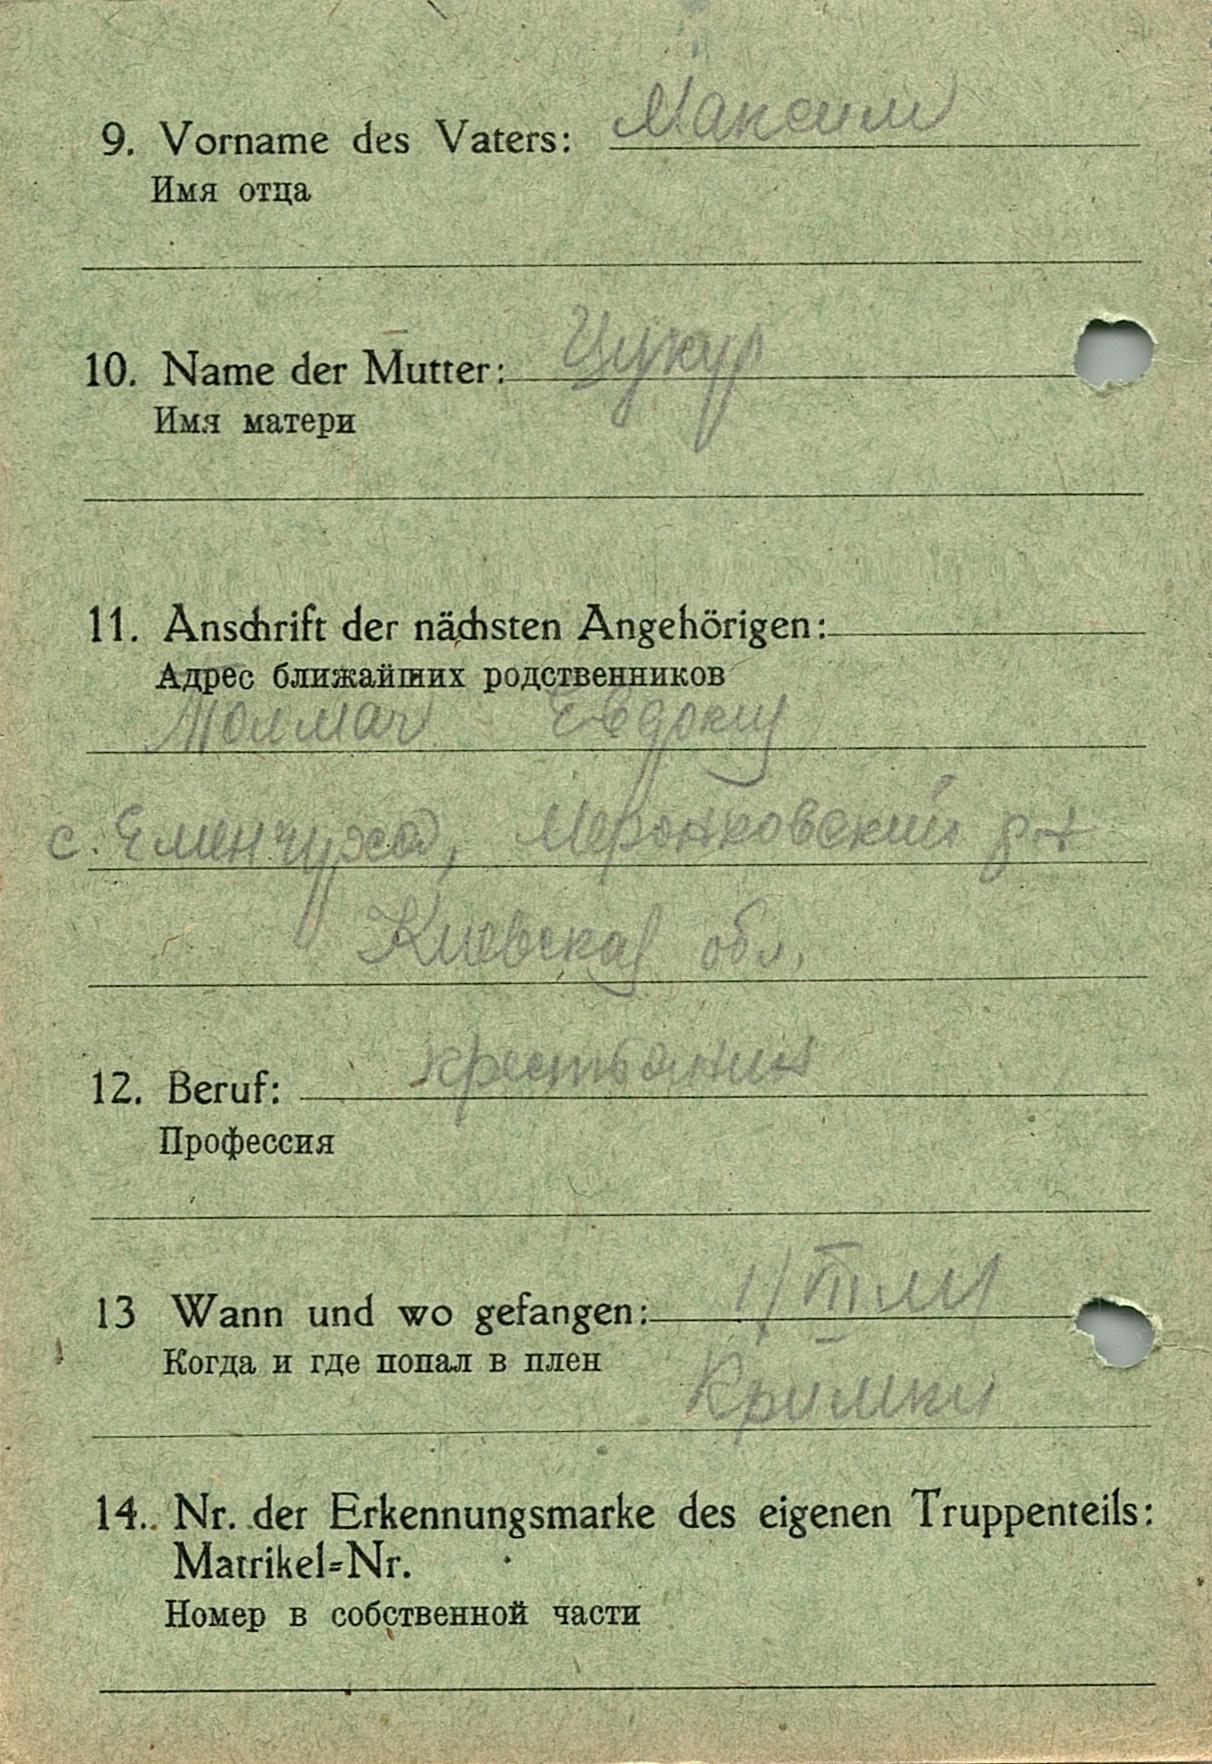 9. Vorname des Vaters: Максим
Имя отца
10. Name der Mutter: Цукур
Имя матери
11. Anschrift der nächsten Angehörigen:
Адрес ближайших родственников
Толмач Евдокия
с. Еменчуха,
Киевская обл.
12. Beruf: крестьянин
Профессия
13 Wann und wo gefangen:
Когда и где попал в плен
14. Nr. der Erkennungsmarke des eigenen Truppenteils:
Matrikel=Nr.
Номер в собственной части